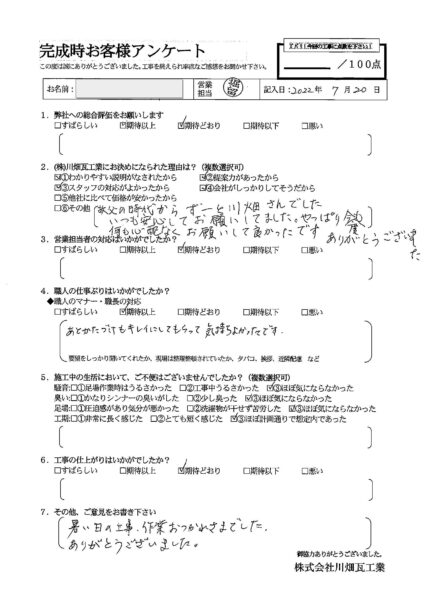 完成時お客様アンケート
この度は誠にありがとうございました。工事を終えられ率直なご感想をお聞かせ下さい。
ズバリ!今回の工事に点数を下さい!
/100点
お名前:
営業担当
記入日:2022年 7月20日
1.弊社への総合評価をお願いします
□すばらしい ☑期待以上 ☑期待どおり □期待以下 □悪い
2.(株)川畑瓦工業にお決めになられた理由は?(複数選択可)
☑①わかりやすい説明がなされたから ☑②提案力があったから
☑③スタッフの対応がよかったから ☑④会社がしっかりしてそうだから
□⑤他社に比べて価格が安かったから
□⑥その他
父の時代からずーと川畑さんでした
いつも安心してお願いしてました。やっぱり今度
何も心配なくお願いして良かったです
ありがとうございました
3.営業担当者の対応はいかがでしたか?
□すばらしい □期待以上 ☑期待どおり □期待以下 □悪い
4.職人の仕事ぶりはいかがでしたか?
◆職人のマナー・職長の対応
□すばらしい □期待以上 ☑期待どおり □期待以下 □悪い
あとかたづけもキレイにしてもらって気持ちよかったです.
要望をしっかり聞いてくれたか、現場は整理整頓されていたか、タバコ、挨拶、近隣配慮 など
5.施工中の生活において、ご不便はございませんでしたか?(複数選択可)
騒音:□①足場作業時はうるさかった □②工事中うるさかった ☑③ほぼ気にならなかった
臭い:□①かなりシンナーの臭いがした □②少し臭った ☑③ほぼ気にならなかった
足場:□①圧迫感があり気分が悪かった □②洗濯物が干せず苦労した ☑③ほぼ気にならなかった
工期:□①非常に長く感じた □②とても短く感じた ☑③ほぼ計画通りで想定内であった
6.工事の仕上がりはいかがでしたか?
□すばらしい □期待以上 ☑期待どおり □期待以下 □悪い
7.その他、ご意見をお書き下さい
暑い日の工事、作業おつかれさまでした.
ありがとうございました。
御協力ありがとうございました。
株式会社川畑瓦工業